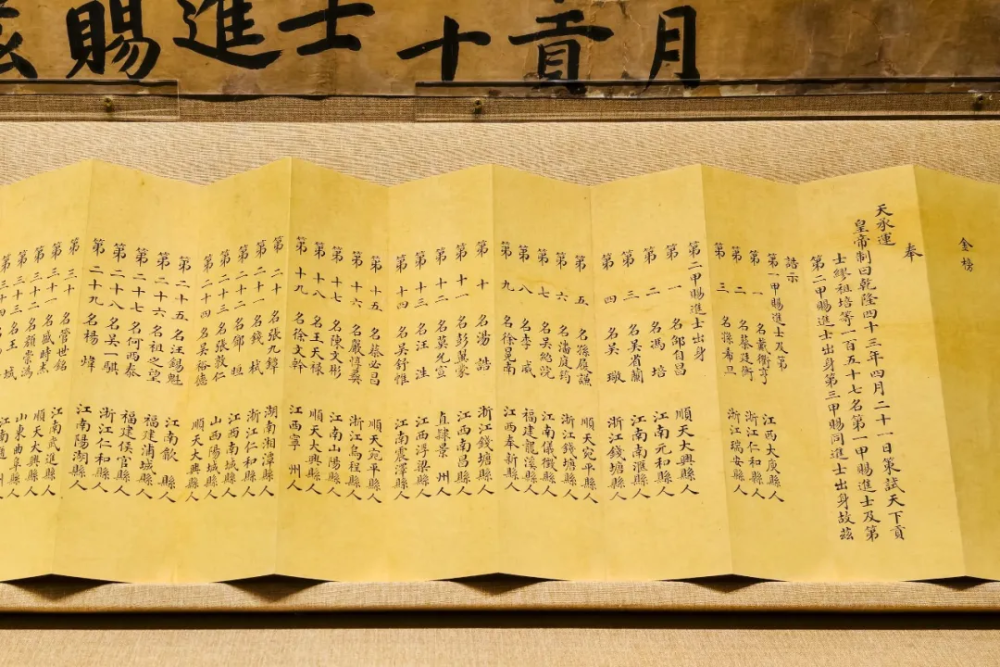 月
貢
十
士
進
賜
金榜
奉
天承運
皇帝制曰乾隆四十三年四月二十一日策試天下貢
士繆祖培等一百五十七名第一甲賜進士及第第
二甲賜進士出身第三甲賜同進士出身故茲
誥示
第一甲賜進士及第
第一名戴衢亨 江西大庾縣人
第二名蔡廷衡 浙江仁和縣人
第三名孫希旦 浙江瑞安縣人
第二甲賜進士出身
第一名邵自昌 順天大興縣人
第二名馮培 江南元和縣人
第三名吳省蘭 江南南匯縣人
第四名吳璥 浙江錢塘縣人
第五名孫履謙 順天宛平縣人
第六名潘庭筠 浙江錢塘縣人
第七名吳紹浣 江南儀徵縣人
第八名李威 福建龍溪縣人
第九名徐見南 江西奉新縣人
第十名湯誥 浙江錢塘縣人
第十一名彭翼蒙 江西南昌縣人
第十二名莫允宣 直隸景州人
第十三名汪洼 江西浮梁縣人
第十四名吳舒惟 江南震澤縣人
第十五名蔡必昌 順天宛平縣人
第十六名嚴惇彝 浙江烏程縣人
第十七名陳文彬 江南山陽縣人
第十八名王天祿 順天大興縣人
第十九名徐文幹 江西寧州人
第二十名張九鐔 湖南湘潭縣人
第二十一名錢栻 浙江仁和縣人
第二十二名鄒垣 江西南城縣人
第二十三名張敦仁 山西陽城縣人
第二十四名吳裕德 順天大興縣人
第二十五名汪錫魁 江南歙縣人
第二十六名祖之望 福建浦城縣人
第二十七名何西泰 福建侯官縣人
第二十八名吳一騏 浙江仁和縣人
第二十九名楊煒 江南陽湖縣人
第三十名管世銘 江南武進縣人
第三十一名戚蓼生 順天大興縣人
第三十二名顏崇溈 山東曲阜縣人